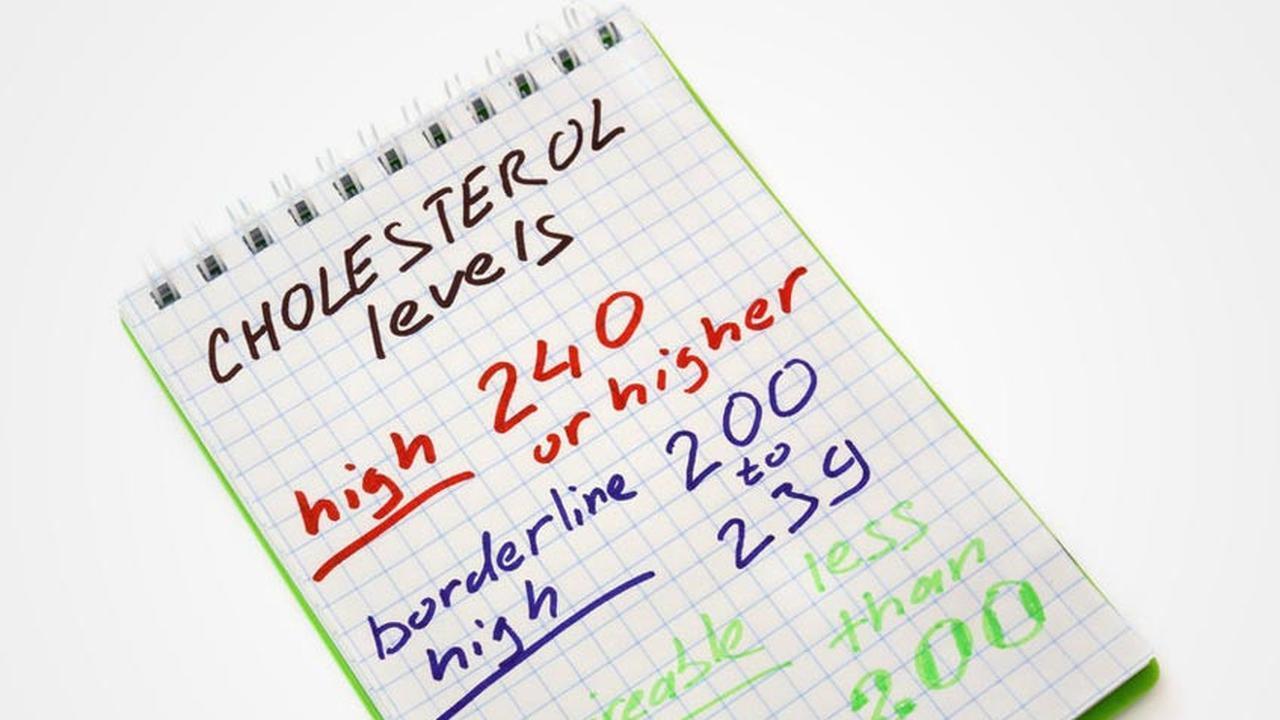 CHOLESTEROL
levels
high 240
or higher
borderline 200
high to
239
less
reable than
200